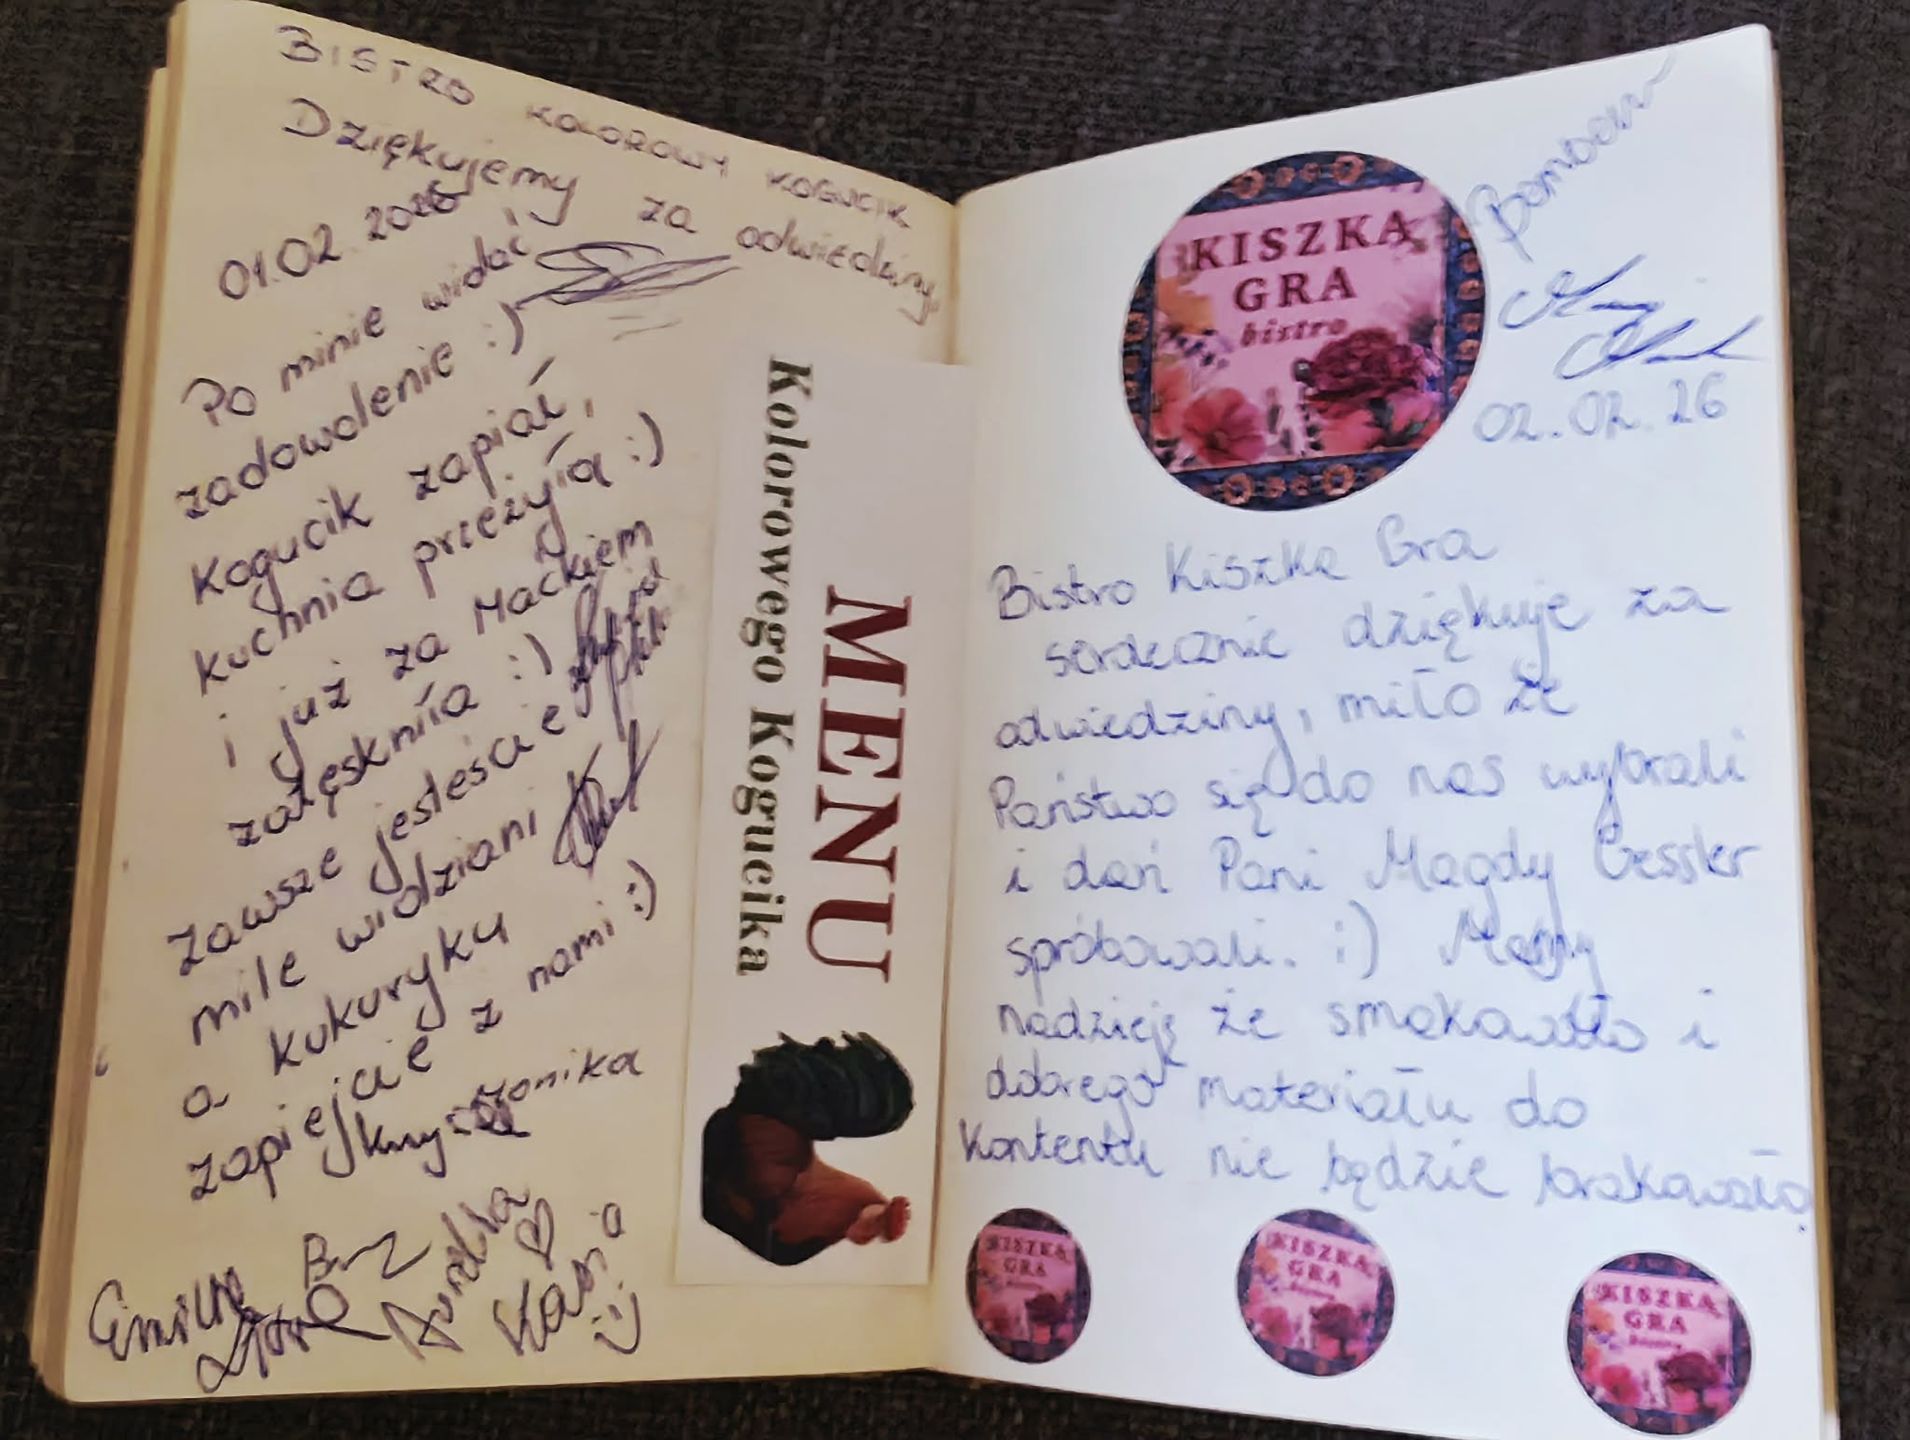 BISTRO KOLOROWY KOGUCIK
Dziękujemy za odwiedziny,
01.02.2026
Po minie widać
zadowolenie :)
Kogucik zapiał,
kuchnia przeżyła :)
i już za Maćkiem
zatęskniła :)
Zawsze jesteście
mile widziani
a kukuryku
zapiejcie z nami :)
Monika
Emilka
Aurelka
Kasia
:)
MENU
Kolorowego Kogucika
KISZKA
GRA
bistro
02.02.26
Bistro Kiszka Gra
serdecznie dziękuje za
odwiedziny, miło że
Państwo się do nas wybrali
i dań Pani Magdy Gessler
spróbowali. :) Mamy
nadzieję że smakowało i
dobrego materiału do
kontentu nie będzie brakowało.
KISZKA
GRA
bistro
KISZKA
GRA
bistro
KISZKA
GRA
bistro